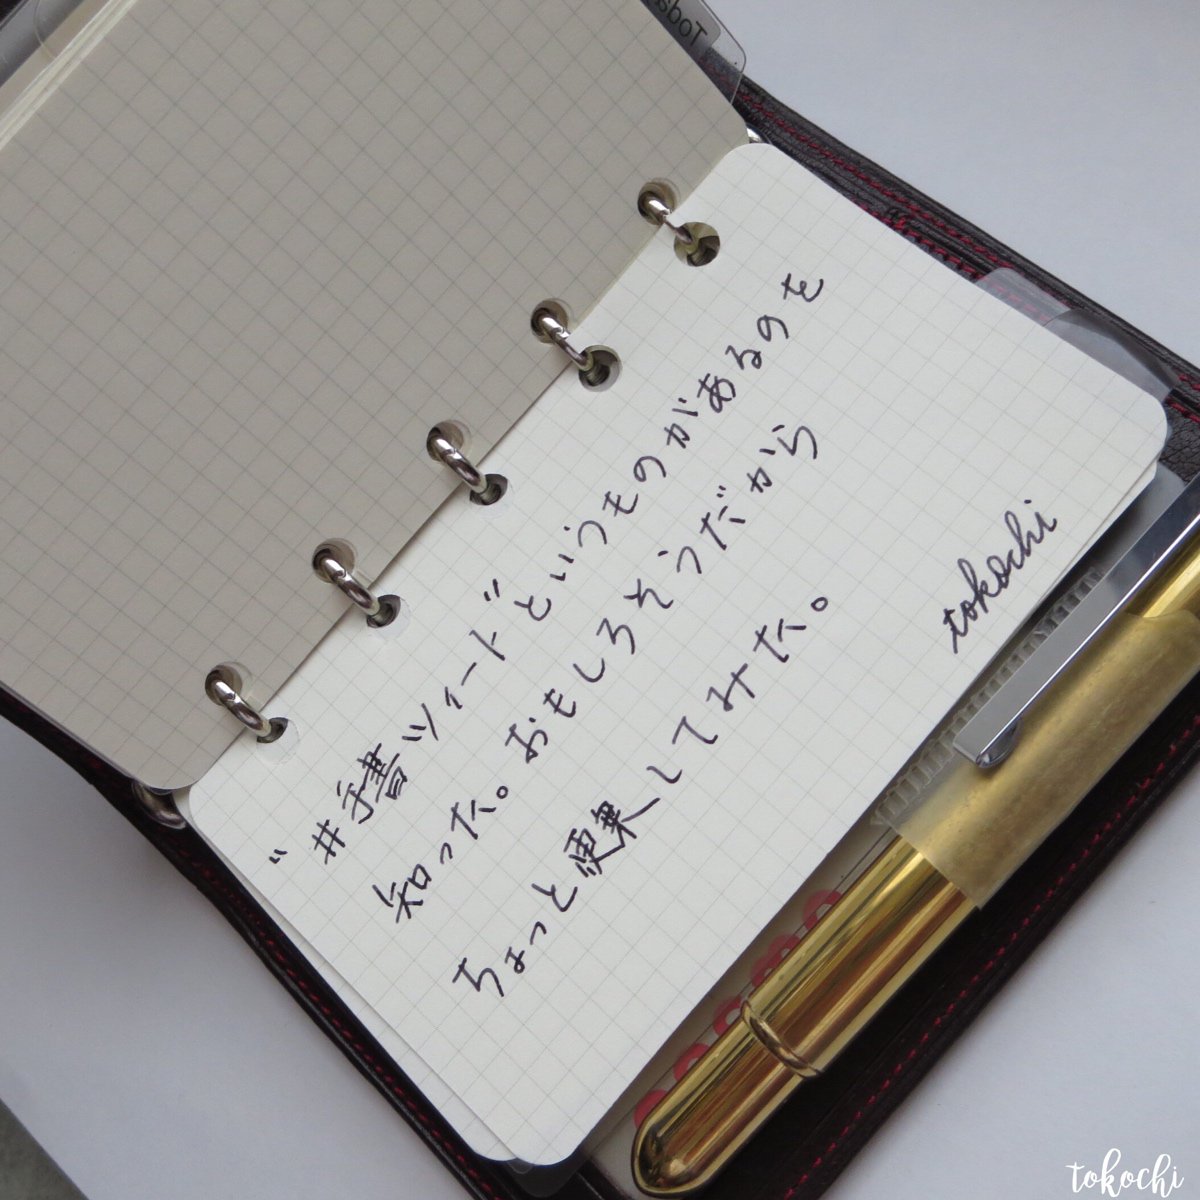 "#手書ツイード"というものがあるのを
知った。おもしろそうだから
ちょっと便乗してみた。
tokochi
Today
tokochi